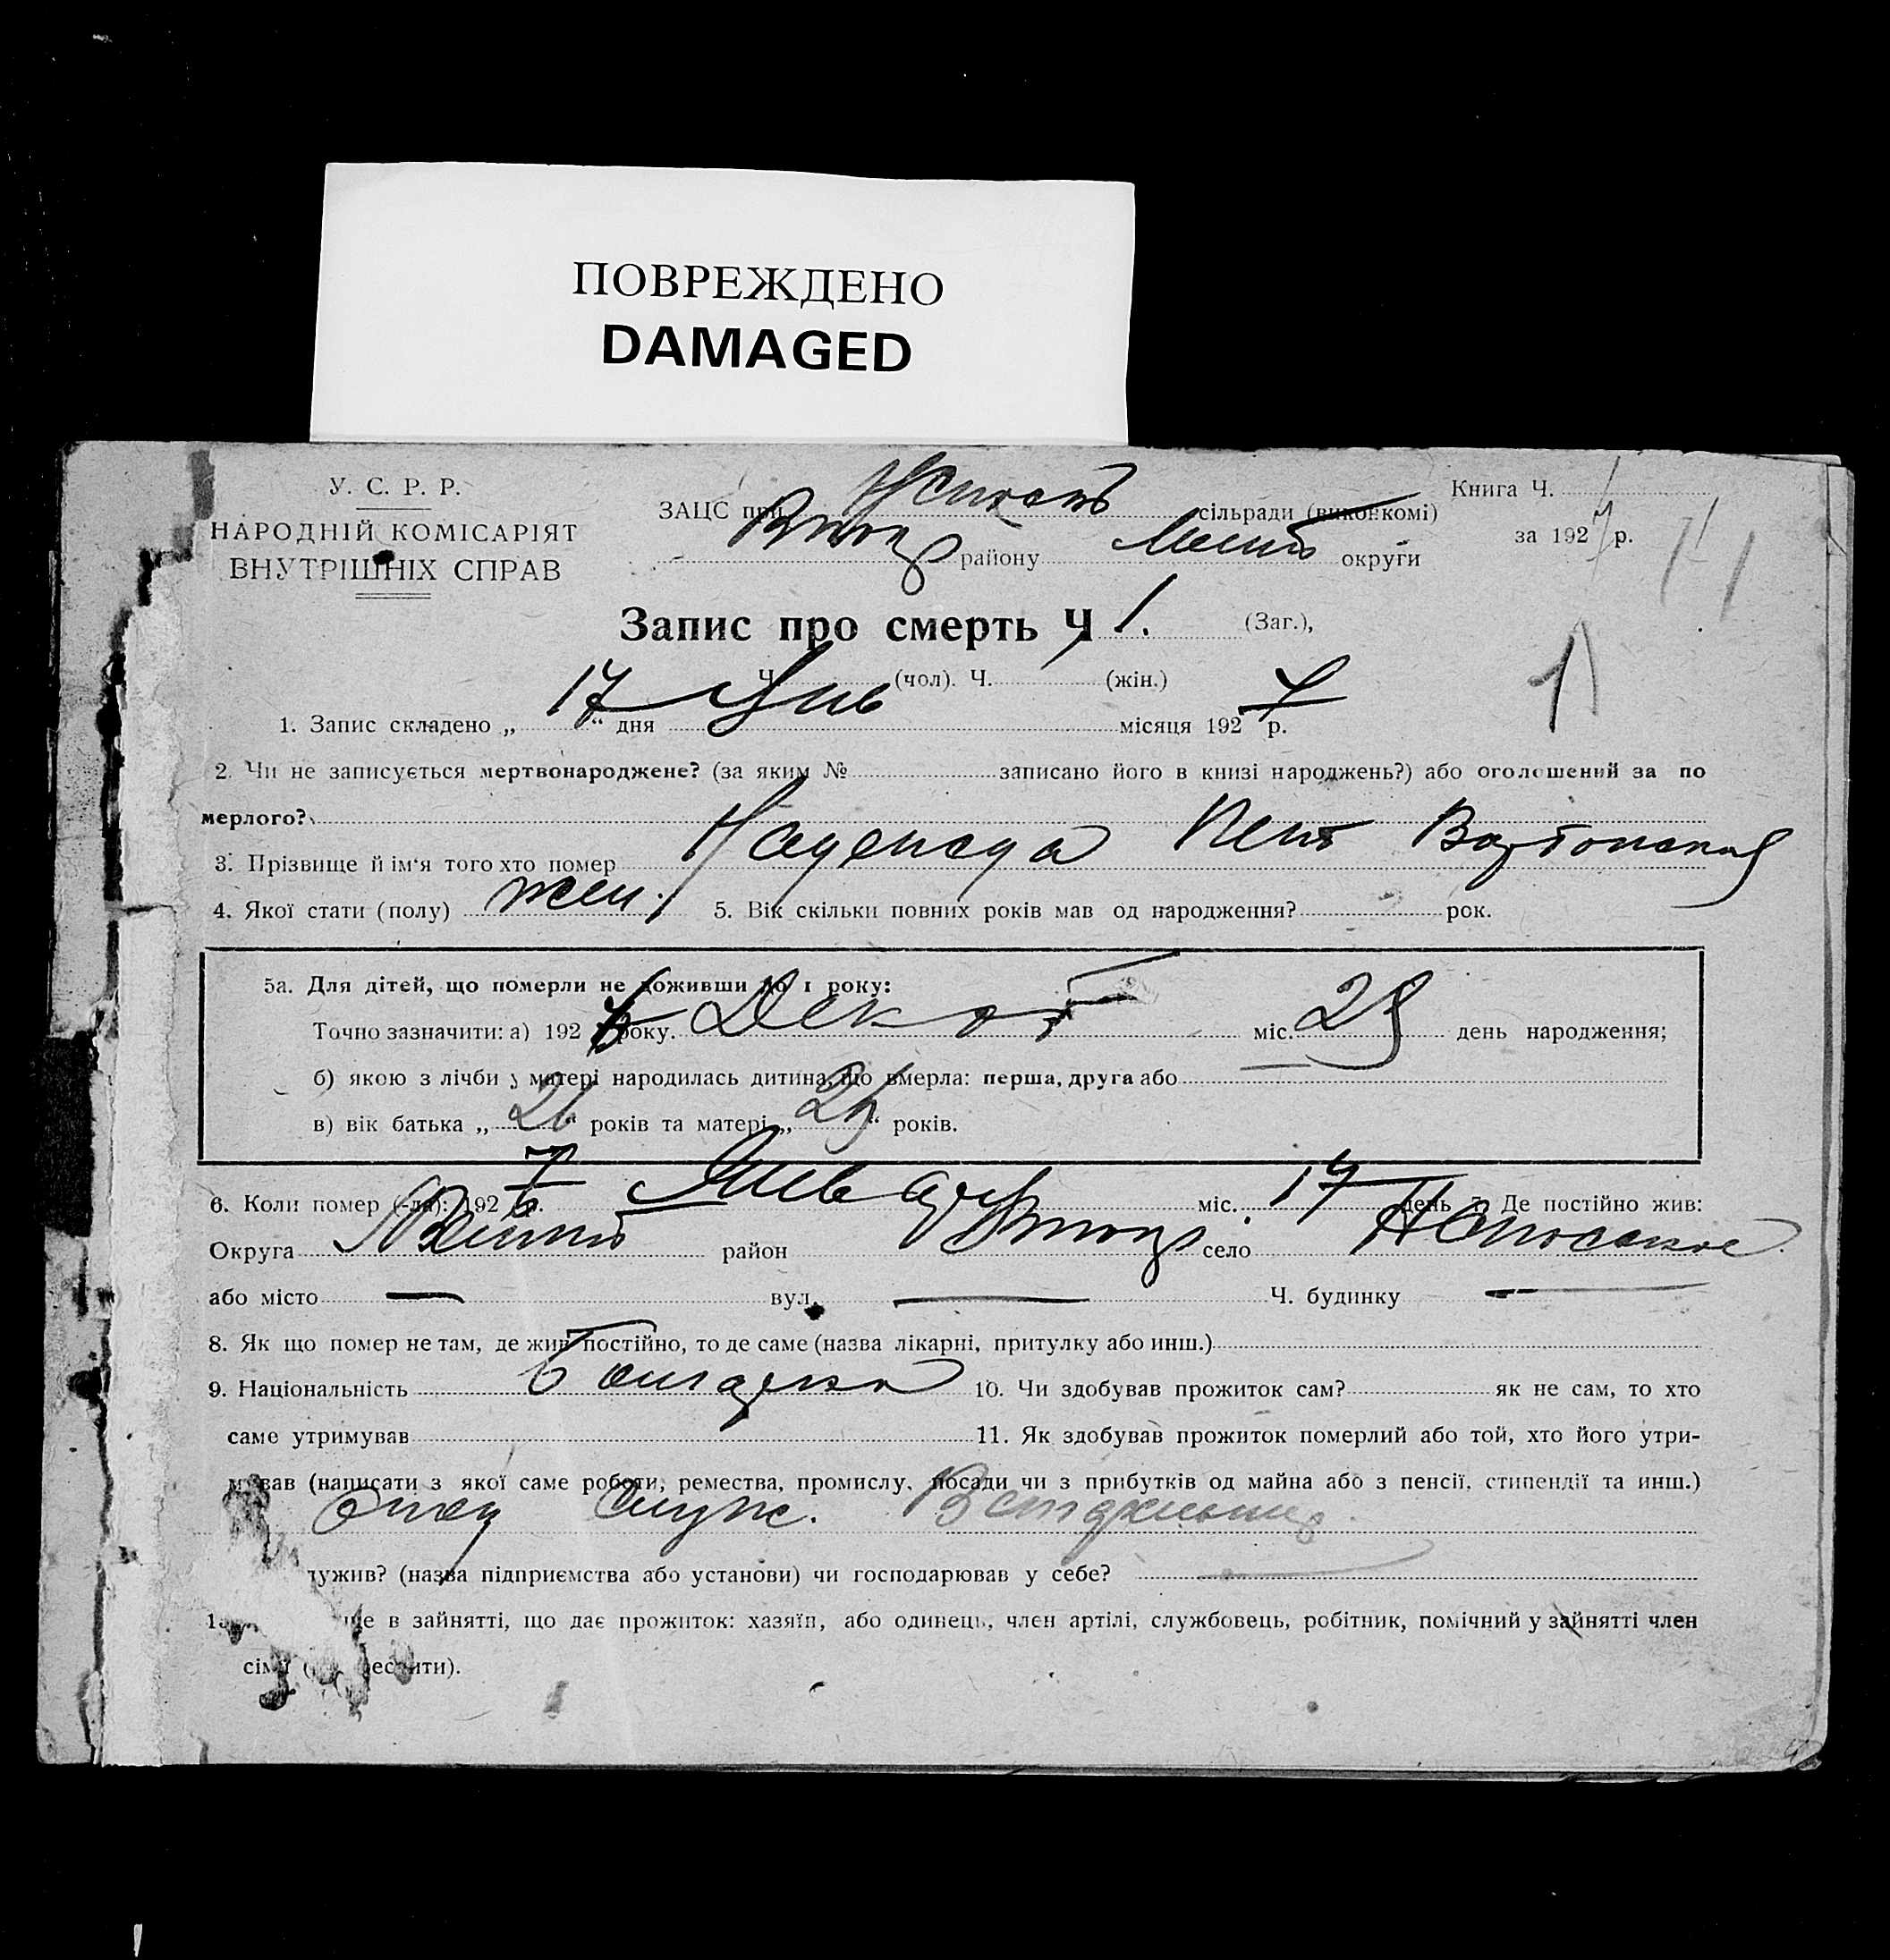 ПОВРЕЖДЕНО
DAMAGED
У. С. Р. Р.
НАРОДНІЙ КОМІСАРІЯТ
ВНУТРІШНІХ СПРАВ
ЗАЦС при сільради (виконкомі)
району округи
Книга Ч.
за 1927 р.
Запис про смерть Ч 1. (Заг.),
Ч. (чол). Ч. (жін.)
1
1. Запис складено „ 17 “ дня Янв місяця 1927 р.
2. Чи не записується мертвонароджене? (за яким № записано його в книзі народжень?) або оголошений за по
мерлого?
3. Прізвище й ім‘я того хто помер Надежда
4. Якої стати (полу) жен. 5. Вік скільки повних років мав од народження? рок.
5а. Для дітей, що померли не доживши до 1 року:
Точно зазначити: а) 1926 року. Декаб міс. 25 день народження;
б) якою з лічби у матері народилась дитина, що вмерла: перша, друга або
в) вік батька „ “ років та матері „ “ років.
6. Коли помер (-ла): 1927 р. Январ міс. 17 день 7. Де постійно жив:
Округа район село
або місто — вул. — Ч. будинку —
8. Як що помер не там, де жив постійно, то де саме (назва лікарні, притулку або инш.)
9. Національність Болгарка 10. Чи здобував прожиток сам? як не сам, то хто
саме утримував 11. Як здобував прожиток померлий або той, хто його утри-
мував (написати з якої саме роботи, ремества, промислу, посади чи з прибутків од майна або з пенсії, стипендії та инш.)
Отец служ.
лужив? (назва підприємства або установи) чи господарював у себе?
ще в зайнятті, що дає прожиток: хазяїн, або одинець, член артілі, службовець, робітник, помічний у зайнятті член